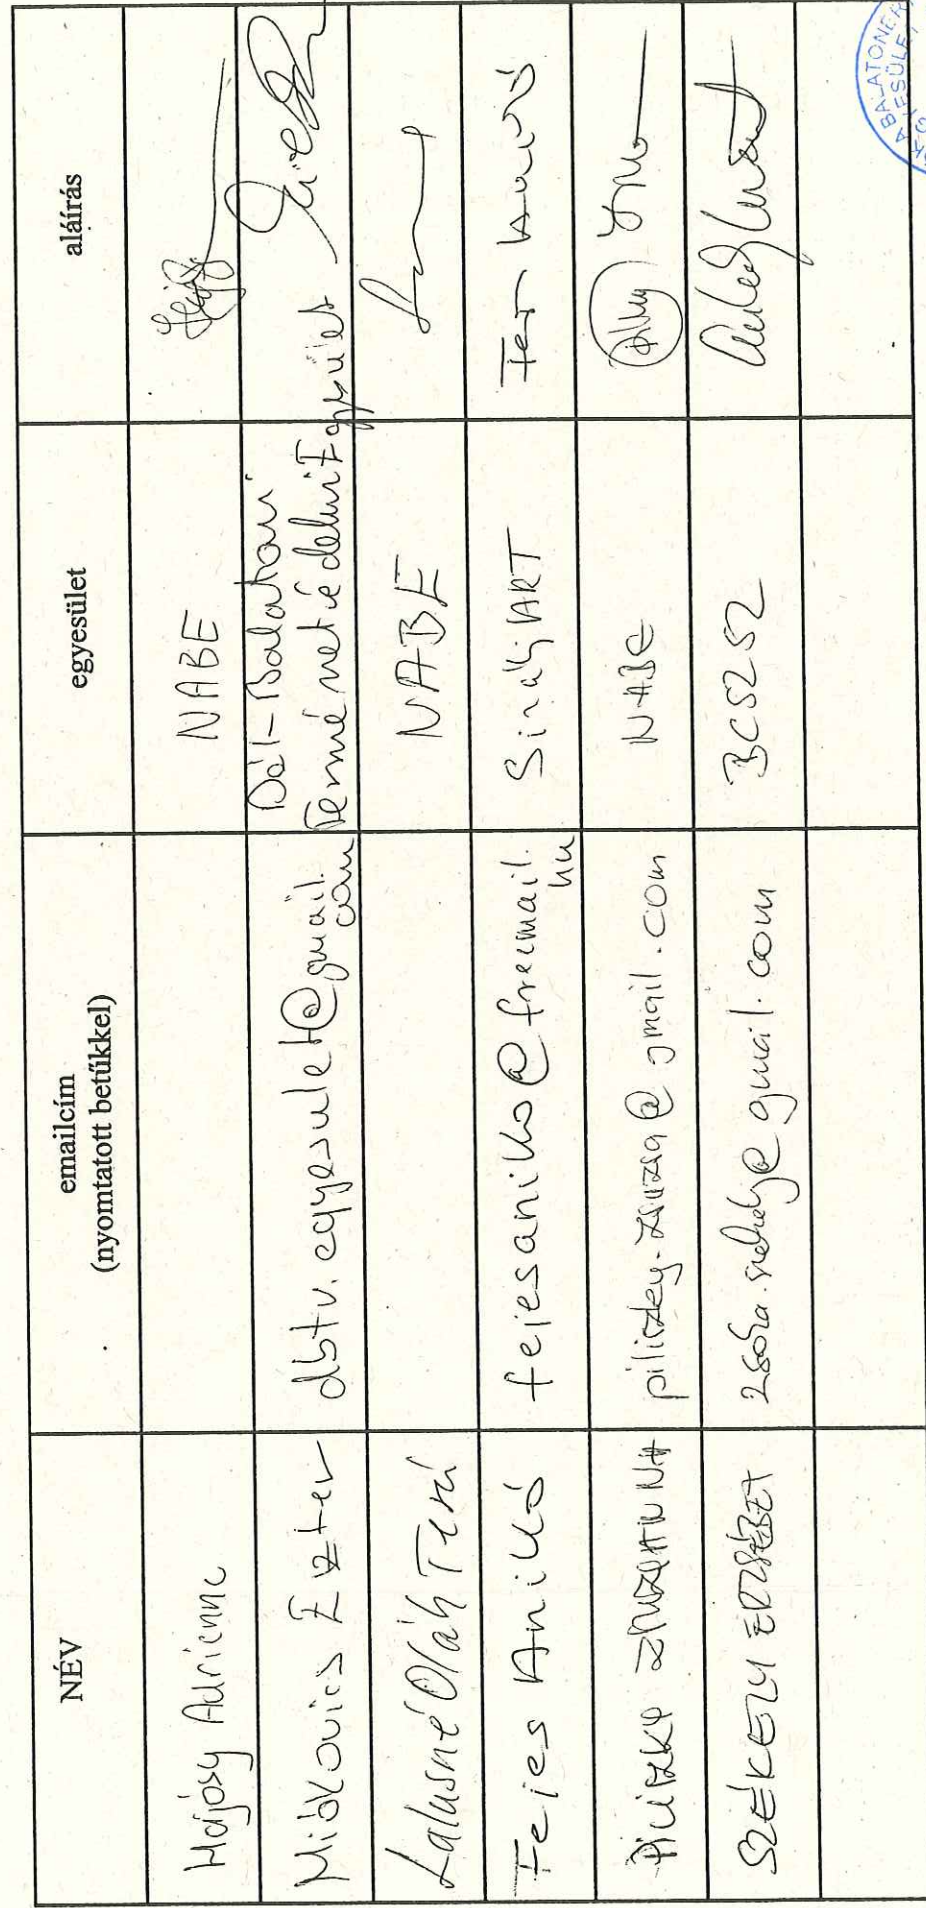 NÉV
emailcím
(nyomtatott betűkkel)
egyesület
aláírás
Hajósy Adrienne
NABE
Miókovics Eszter
dbtv.egyesulet@gmail.
com
Dél-Balatoni
Természetvédelmi Egyesület
Lalusné Oláh Teri
NABE
Fejes Anikó
fejesaniko@freemail.
hu
SirályART
Piliczky ZSUZSANNA
piliczky.zsuzsa@gmail.com
NABE
SZÉKELY ERZSÉBET
zsoha.szekely@gmail.com
BCSZSZ
A BALATONÉR